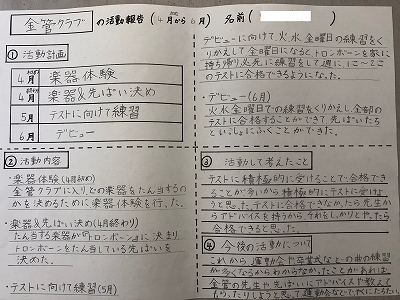 金管クラブ の活動報告(4月から6月) 名前(
① 活動計画
4月 初め 楽器体験
4月 終わり 楽器&先ぱい決め
5月 テストに向けて練習
6月 デビュー
② 活動内容
・楽器体験(4月始め)
金管クラブに入り、どの楽器をたん当するの
かを決めるために楽器体験を行た。
・楽器&先ぱい決め(4月終わり)
たん当する楽器が「トロンボーン」に決まり
トロンボーンをたん当している先ぱいを
決めた。
・テストに向けて練習(5月)
デビューに向けて、火水金曜日の練習をく
りかえして金曜日になるとトロンボーンを家に
持ち帰り必死に練習をして週に1〜2こ
のテストに合格できるようになった。
・デビュー(6月)
火水金曜日での練習をくりかえし、全部の
テストに合格することができて先ぱいたち
といっしょにふくことができた。
③ 活動して考えたこと
テストに積極的に受けることで、合格でき
ることが多いから積極的にテストに受けよ
うと思った。テストに合格できなかたら先生か
らアドバイスを持うから それをしっかりとやったら
合格できると思った。
④ 今後の活動について
これから、運動会や卒業式など…の曲の練習
が多くなるからわからなかったことがあれば
金管の先生や先ぱいにアドバイスや教えて
もらったりしようと思って運動会などでやくにたちたい。